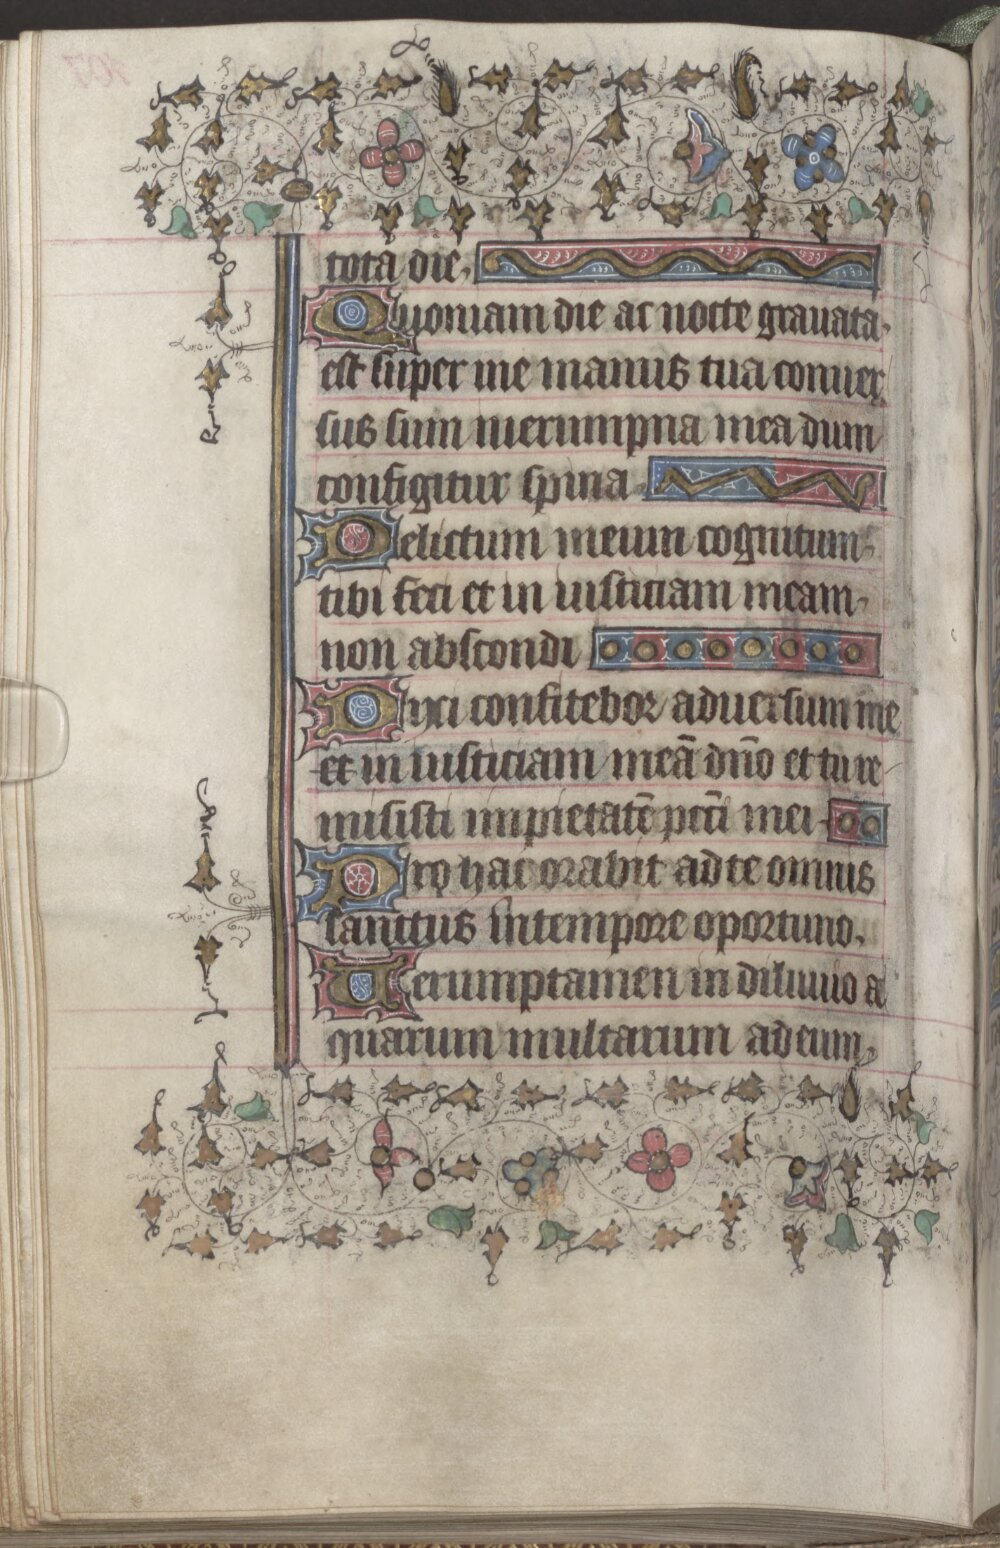 tota die.
Quoniam die ac nocte grauata
est super me manus tua conuer
sus sum in erumpna mea dum
configitur spina
Delictum meum cognitum
tibi feci et in iusticiam meam
non abscondi
Dixi confitebor aduersum me
et in iusticiam meā dn̄o et tu re
misisti impietatē pctī mei
Pro hac orabit ad te omnis
sanctus in tempore oportuno.
Uerumptamen in diluuio a
quarum multarum ad eum